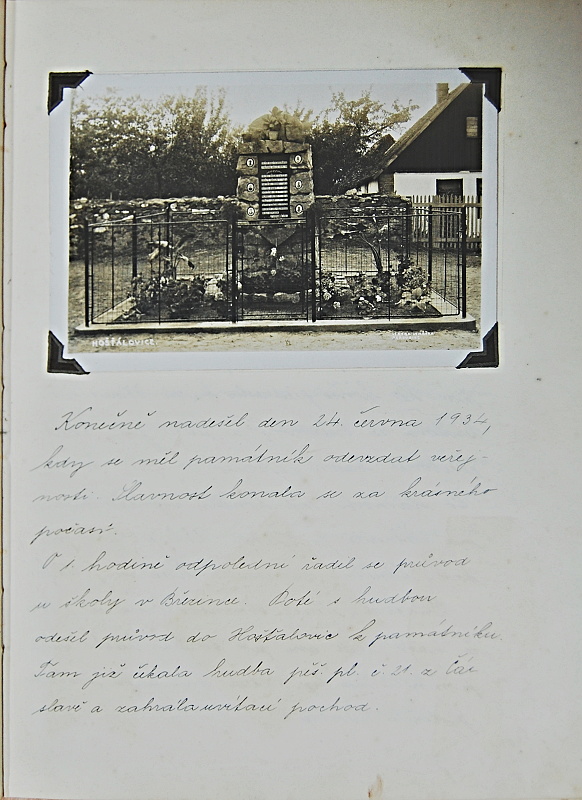 HOŠŤÁLOVICE.
Konečně nadešel den 24. června 1934,
kdy se měl památník odevzdat veřej-
nosti. Slavnost konala se za krásného
počasí.
O 1. hodině odpolední řadil se průvod
u školy v Březince. Poté s hudbou
odešel průvod do Hošťalovic k památníku.
Tam již čekala hudba pěš. pl. č. 21. z Čá-
slavě a zahrála uvítací pochod.